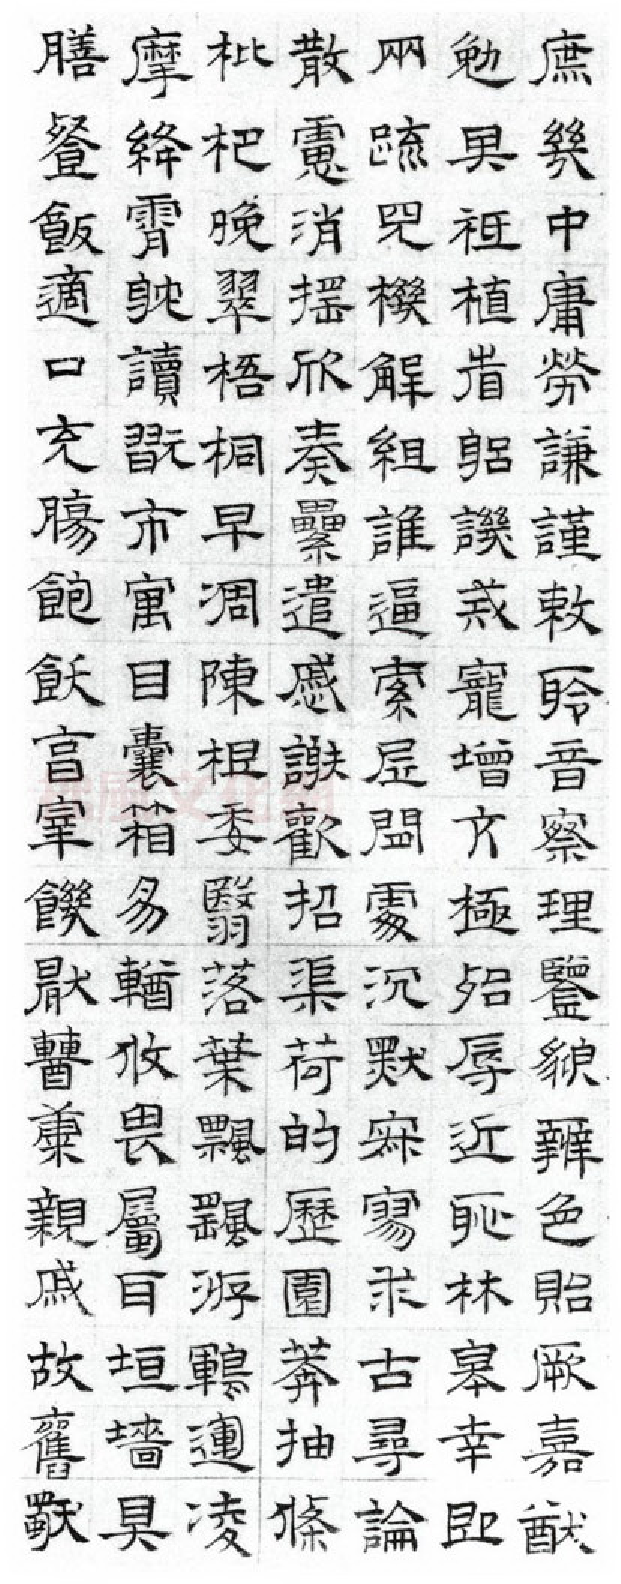 庶幾中庸勞謙謹敕聆音察理鑒貌辨色貽厥嘉猷
勉其祗植省躳譏戒寵增亢極殆辱近恥林皋幸即
兩疏見機解組誰逼索居閒處沉默寂寥求古尋論
散慮消搖欣奏纍遣慼謝歡招渠荷的歷園莽抽條
枇杷晚翠梧桐早凋陳根委翳落葉飄颻游鶤運凌
摩絳霄躭讀翫市寓目囊箱易輶攸畏屬耳垣墻具
膳餐飯適口充腸飽飫亯宰饑猒親戚故舊